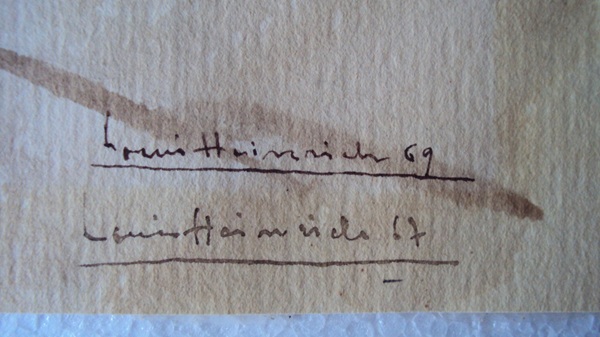 Louis Heinrich 69
Louis Heinrich 67